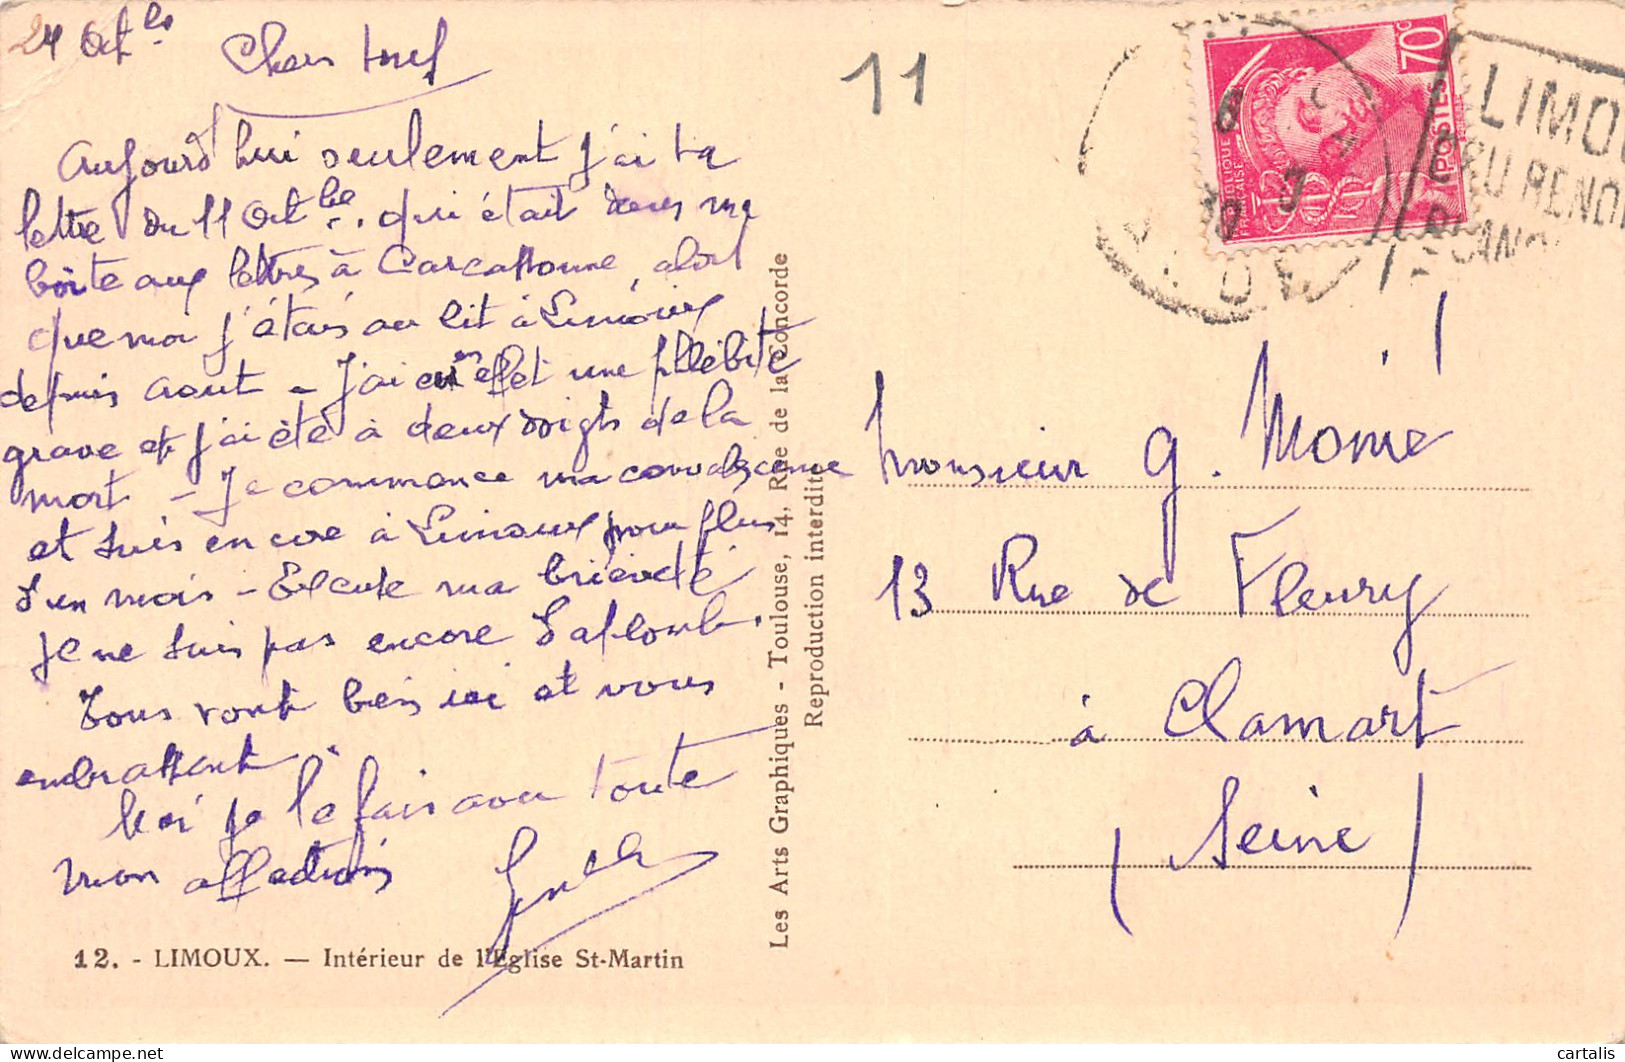 24 Oct bre
Cher
Aujourd'hui seulement j'ai ta
lettre du 11 Octbre. qui était dans ma
boîte aux lettres à Carcassonne, alors
que moi j'étais au lit à Limoux
depuis aout - J'ai eu en effet une phlébite
grave et j'ai été à deux doigts de la
mort - Je commence ma convalescence
et suis encore à Limoux pour plus
d'un mois - Excuse ma brièveté
je ne suis pas encore d'aplomb.
Tous vont bien ici et vous
embrassent
Moi je le fais avec toute
mon affection
12. - LIMOUX. — Intérieur de l'Eglise St-Martin
Les Arts Graphiques - Toulouse, 14, Rue de la Concorde
Reproduction interdite
11
70c
POSTES
REPUBLIQUE
FRANÇAISE
LIMOU
Monsieur G. Monié
13 Rue de Fleury
à Clamart
(Seine)
cartalis